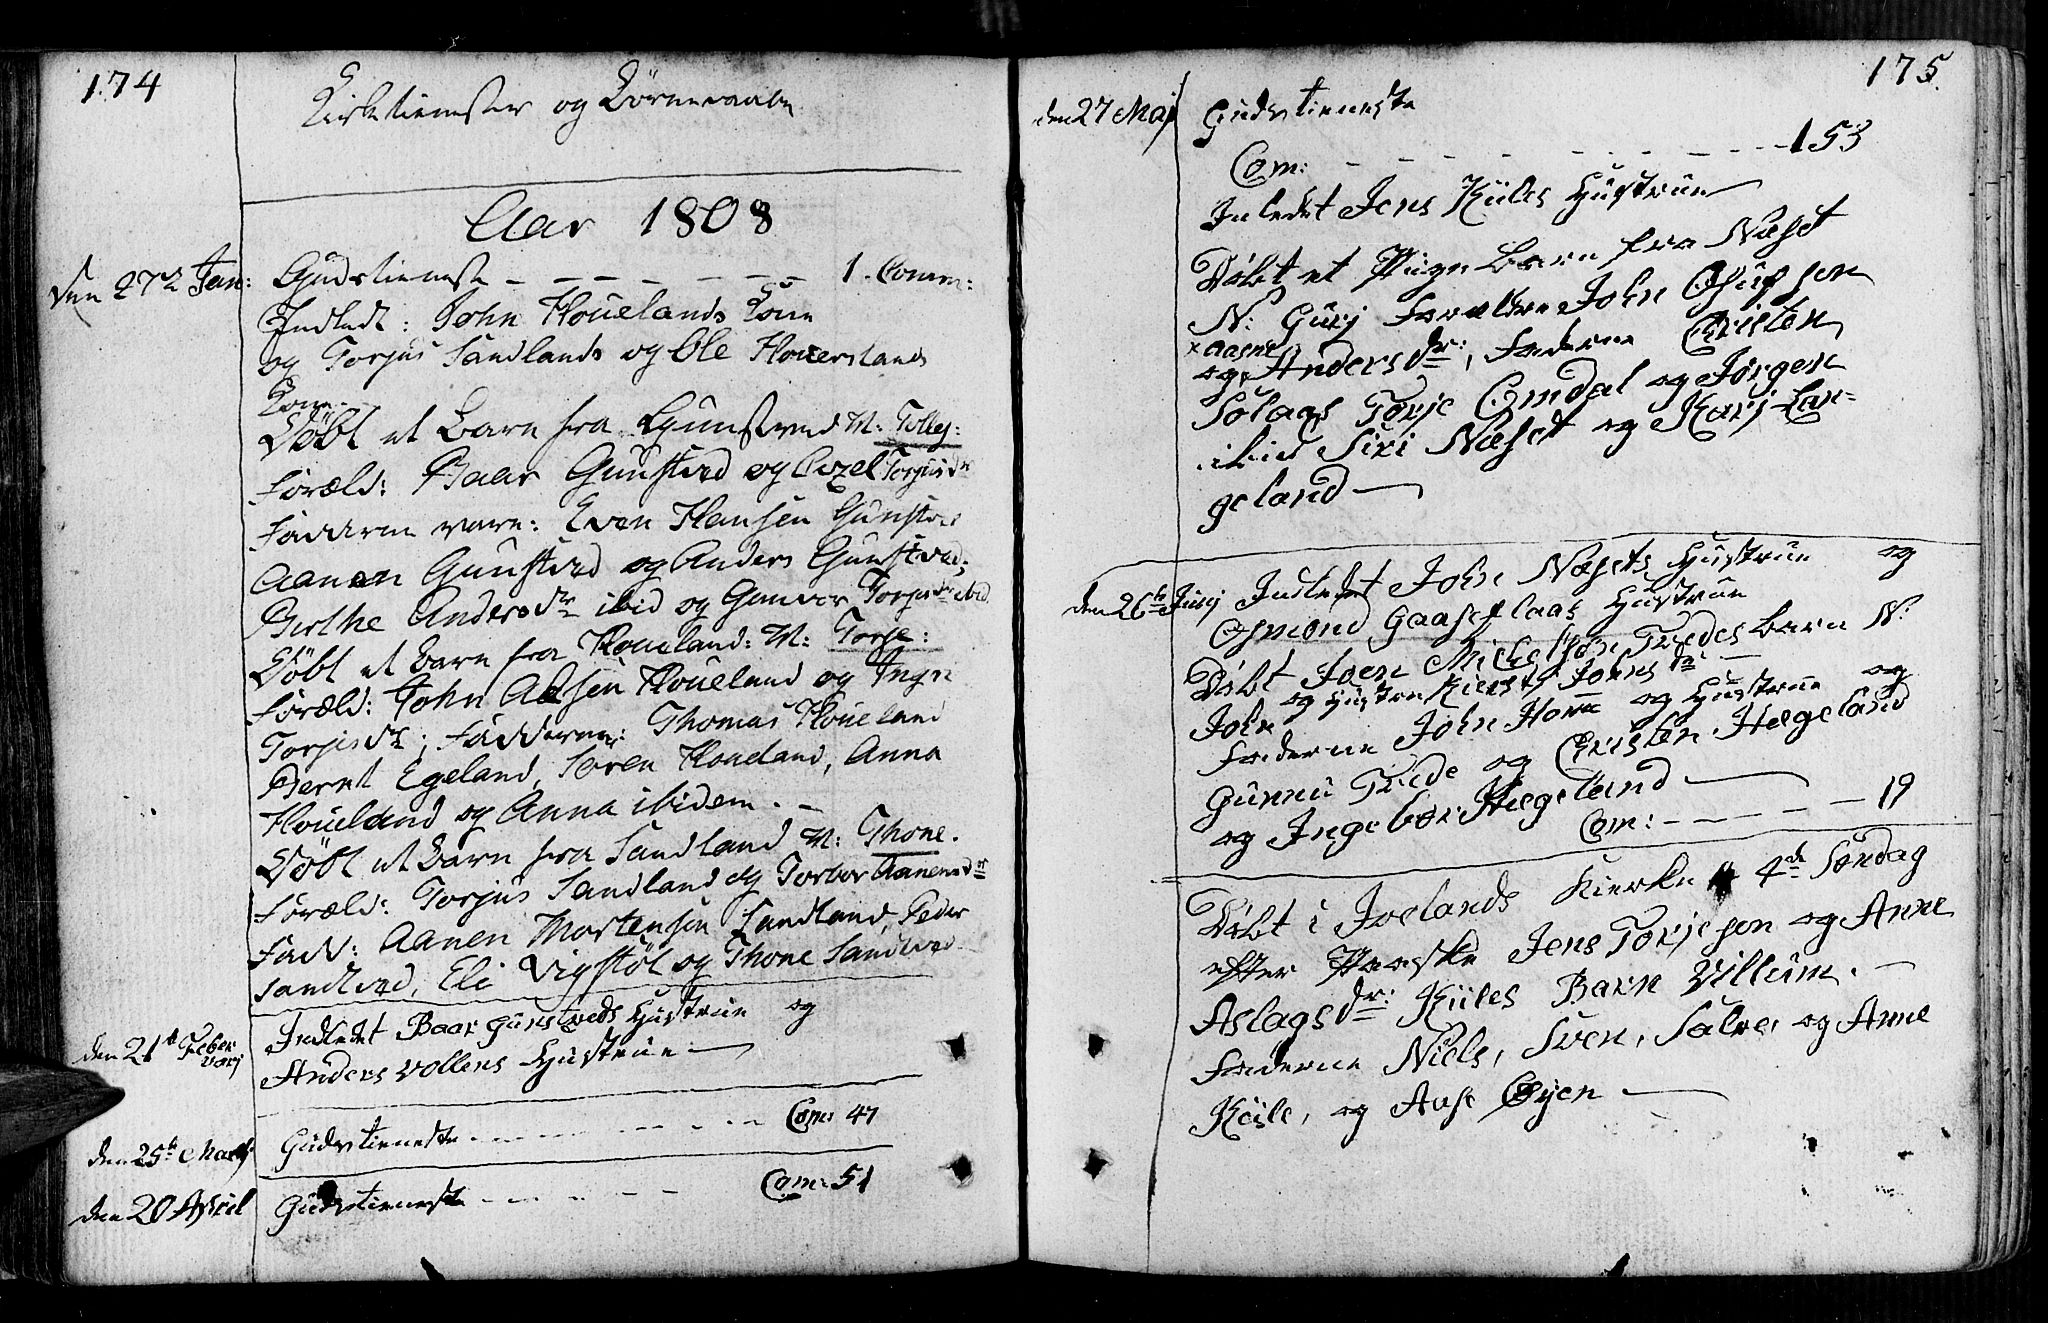 174
Kirketienester og Børnedaabe
Aar 1808
den 27de Jan: Gudstieneste - - - - - - - 1. Comm:
Indledt: John Houelands Kone
og Torjus Sandlands og Ole Houerslands
Kone. -
Döbt et Barn fra Gunstved N: Tollej:
Foræld: Baar Gunstved og Axel Torjusdr
Fadderne vare: Even Hansen Gunstved
Aanen Gunstved og Anders Gunstved,
Birthe Andersdr ibid og Gunvor Torjusdr ibid.
Döbt et Barn fra Houeland: N: Torje:
Foræld: John Aasen Houeland og Ingri
Torjusdr; Fadderne: Thomas Houeland
Bernt Egeland, Søren Houeland, Anna
Houeland og Anna ibidem. -
Döbt et Barn fra Sandland N: Thone.
Foræld: Torjus Sandland og Torbor Aanensdr
Fadd: Aanen Mortensen Sandland, Peder
Sandved, Eli Vigstöl og Thone Sandved
den 21de Februarj Indledet Baar Gunstveds Hustrue og
Anders Vollens Hustrue
den 25de Martj Gudstieneste - - - - - - Com: 47
den 20 April Gudstieneste - - - - - - Com: 51
175.
den 27 Maj Gudstieneste
Com: - - - - - - - - - 153
Inledet Jens Kiiles Hustrue
Döbt et Pige Barn fra Næset
N: Gurj Forældre John Osufson
x Aasne
og Andersdr:, Faderne Cristen
Solaas Torje Omdal og Jørgen
ibid Siri Næset og Karj Lan=
geland
den 26de Junj Indledet John Næsets Hustrue og
Osmond Gaaseflaas Hustrue
Döbt Joen Michelsøn Tvedes Barn N:
John og Hustru Kirsti Johnsdr
Faderne John Homme og Hustrue og
Gunnu Tvede og Christen Hægeland
og Ingebor Hægeland
Com: - - - - 19
Döbt i Ivelands Kierke 4de Søndag
efter Paaske Jens Torjeson og Anne
Aslagsdr: Kiiles Barn Villum. -
Faderne Niels, Sven, Salve, og Anne
Kiile, og Aase Øyen